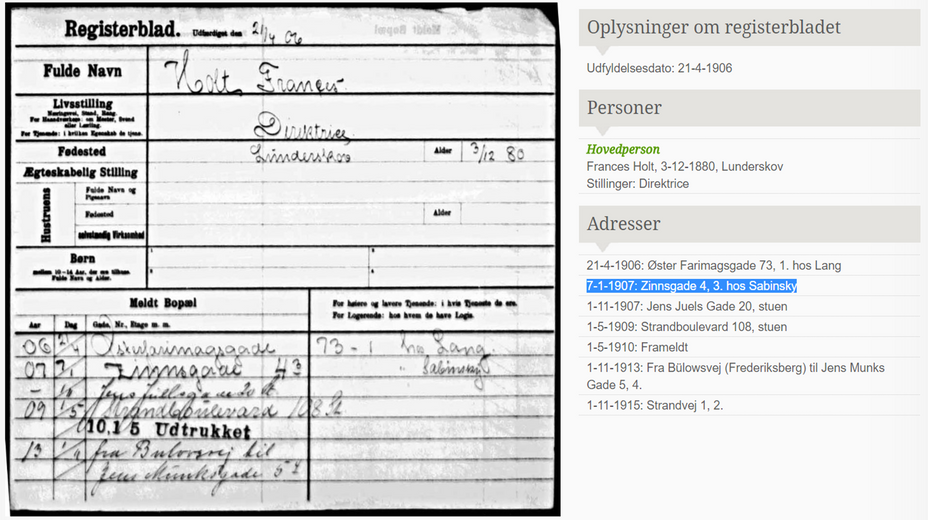 Registerblad. Udfærdiget den 21/4 06
Fulde Navn Holt Frances
Livsstilling
Næringsvei, Stand, Rang.
For Haandværkere: om Mester, Svend
eller Lærling.
For Tjenende: i hvilken Egenskab de tjene.
Direktrice
Fødested Lunderskov Alder 3/12 80
Ægteskabelig Stilling
Hustruens
Fulde Navn og
Pigenavn
Fødested Alder
selvstændig Virksomhed
Børn
mellem 10-14 Aar, der ere tilhuse.
Fulde Navn og Alder.
Meldt Bopæl
For højere og lavere Tjenende: i hvis Tjeneste de ere.
For Logerende: hos hvem de have Logis.
Aar Dag Gade, Nr., Etage m. m.
06 21/4 Østerfarimagsgade 73 - 1 hos Lang
07 7/1 Zinnsgade 4 3 " Sabinsky
- 1/11 Jens Juelsgade 20 st
09 1/5 Strandboulevard 108 St
10.1 5 Udtrukket
13 1/11 fra Bülowsvej til
Jens Munksgade 5 4
Oplysninger om registerbladet
Udfyldelsesdato: 21-4-1906
Personer
Hovedperson
Frances Holt, 3-12-1880, Lunderskov
Stillinger: Direktrice
Adresser
21-4-1906: Øster Farimagsgade 73, 1. hos Lang
7-1-1907: Zinnsgade 4, 3. hos Sabinsky
1-11-1907: Jens Juels Gade 20, stuen
1-5-1909: Strandboulevard 108, stuen
1-5-1910: Frameldt
1-11-1913: Fra Bülowsvej (Frederiksberg) til Jens Munks
Gade 5, 4.
1-11-1915: Strandvej 1, 2.